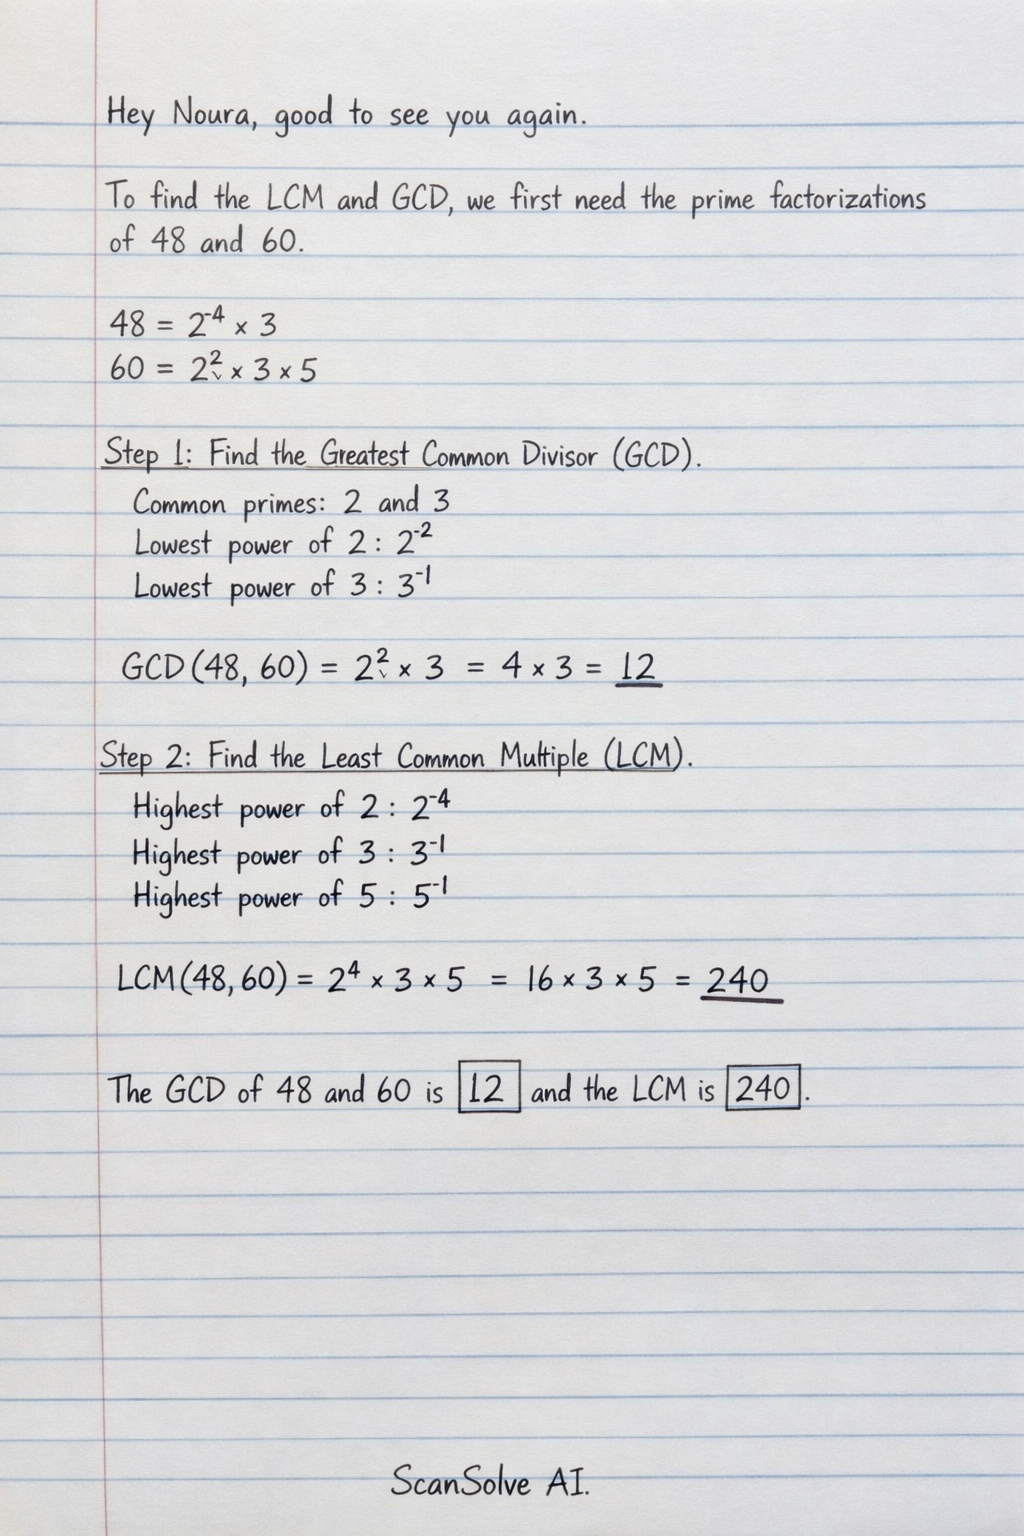 Hey Noura, good to see you again.
To find the LCM and GCD, we first need the prime factorizations
of 48 and 60.
48 = 2⁻⁴ × 3
60 = 2² × 3 × 5
Step 1: Find the Greatest Common Divisor (GCD).
Common primes: 2 and 3
Lowest power of 2 : 2⁻²
Lowest power of 3 : 3⁻¹
GCD (48, 60) = 2² × 3 = 4 × 3 = 12
Step 2: Find the Least Common Multiple (LCM).
Highest power of 2 : 2⁻⁴
Highest power of 3 : 3⁻¹
Highest power of 5 : 5⁻¹
LCM (48, 60) = 2⁴ × 3 × 5 = 16 × 3 × 5 = 240
The GCD of 48 and 60 is 12 and the LCM is 240.
ScanSolve AI.